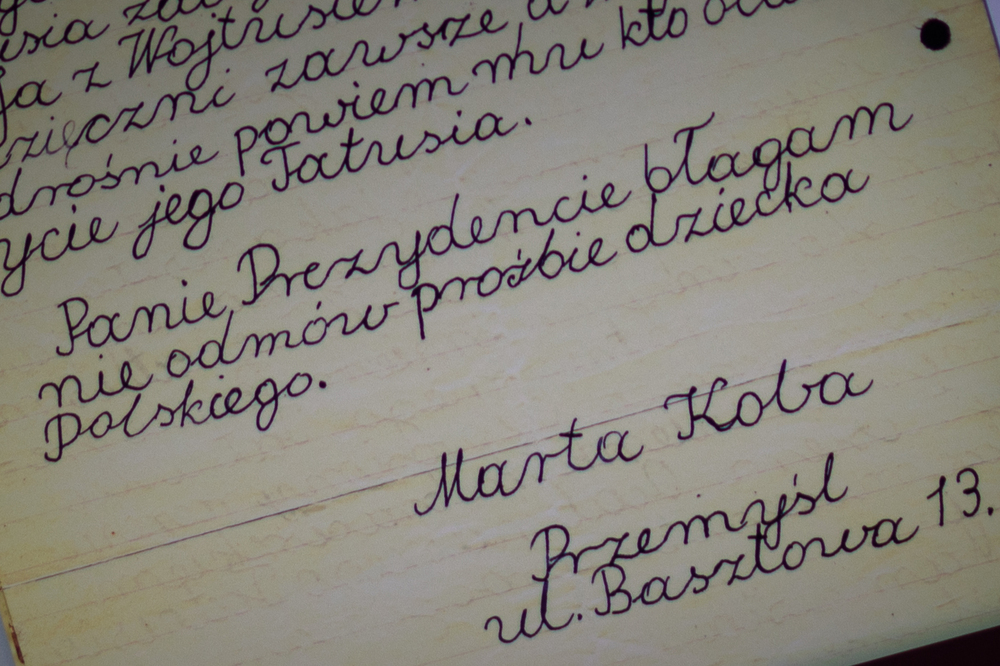 ja z Wojtusiem
zawsze
powiem mu kto
ycie jego Tatusia.
Panie Prezydencie błagam
nie odmów proźbie dziecka
Polskiego.
Marta Koba
Przemyśl
ul. Basztowa 13.